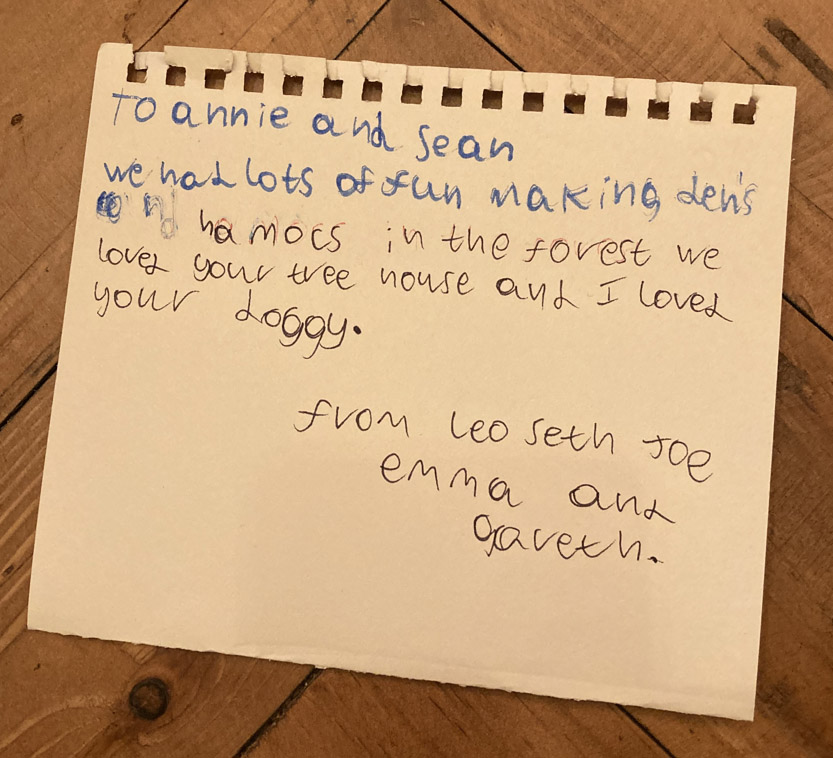 To annie and sean
we had lots of fun making den's
and hamocs in the forest we
loved your tree house and I loved
your doggy.
from leo seth Joe
emma and
gareth.